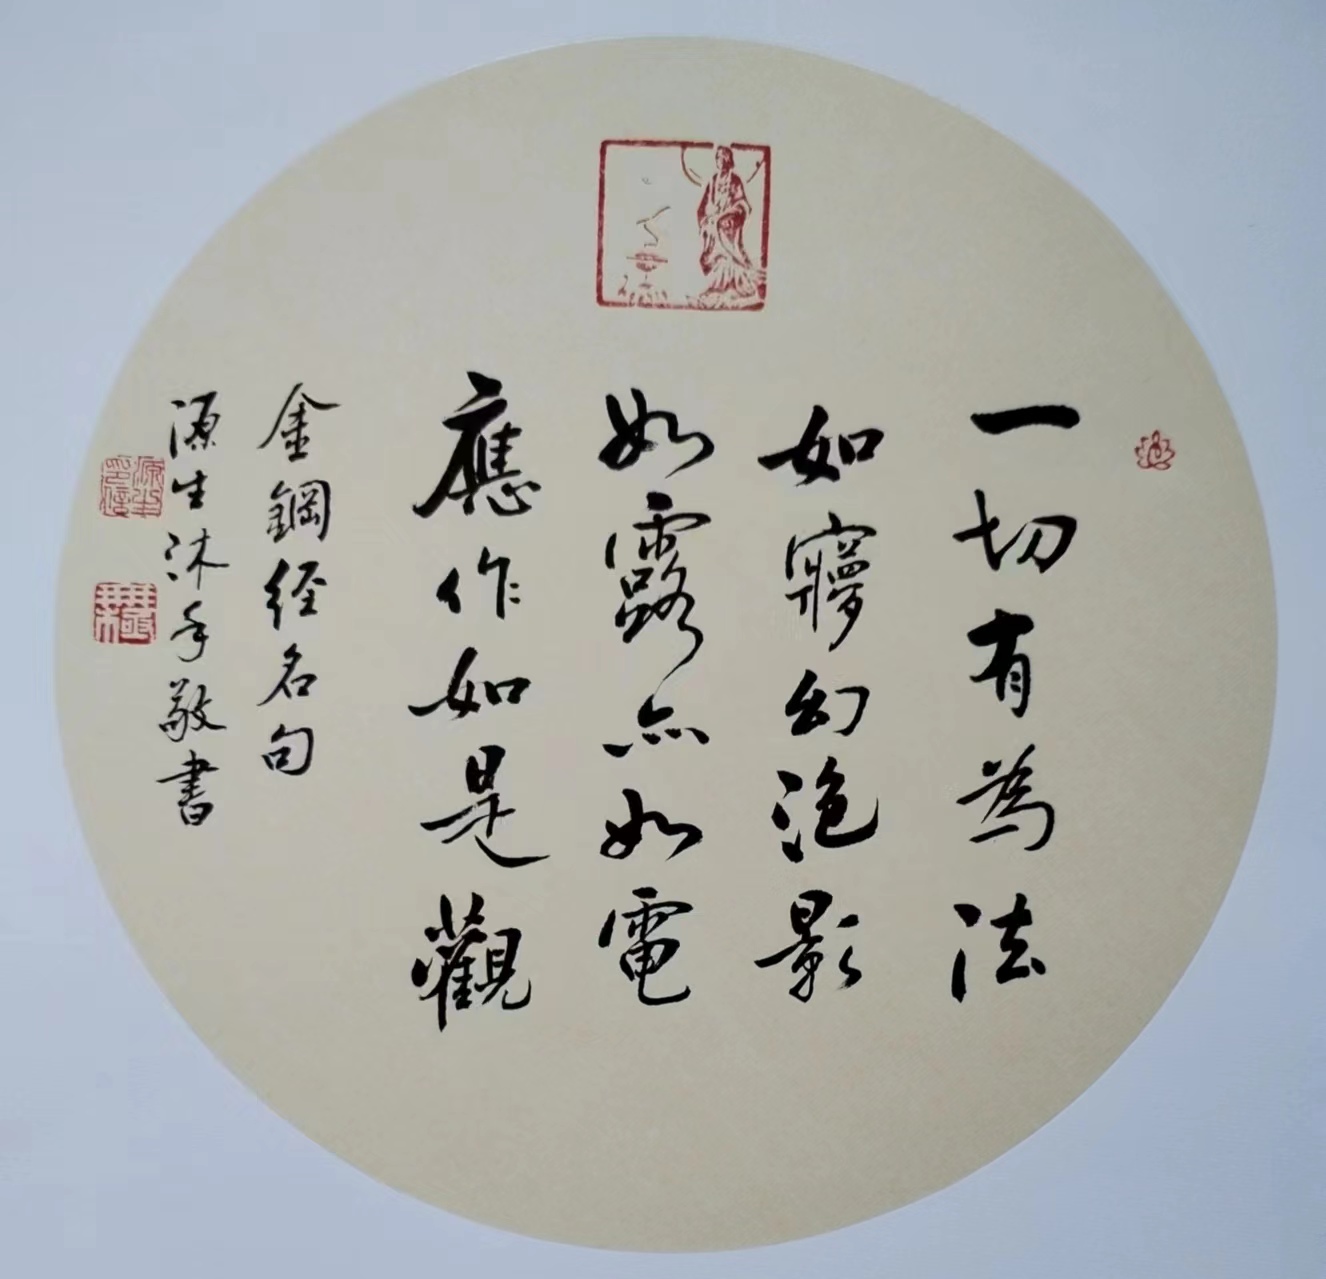 一切有為法
如寱幻泡影
如露亦如電
應作如是觀
金鋼经名句
源生沐手敬書